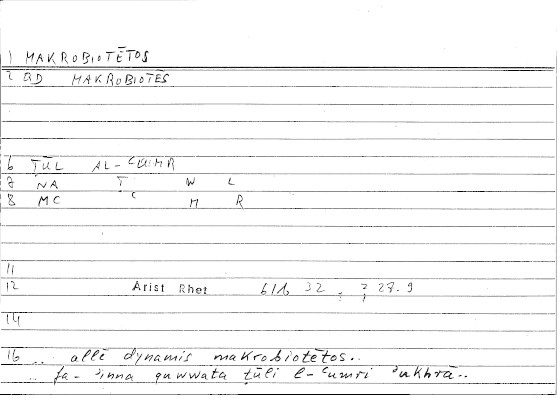 1 MAKROBIOTĒTOS
2 QD MAKROBIOTĒS
6 ṬŪL AL-ʿUMR
7 NA Ṭ W L
8 MC ʿ M R
11
12 Arist Rhet 61b 32 ; 27.9
14
16 .. allē dynamis makrobiotētos..
.. fa-ʾinna quwwata ṭūli l-ʿumri ʾukhrā..